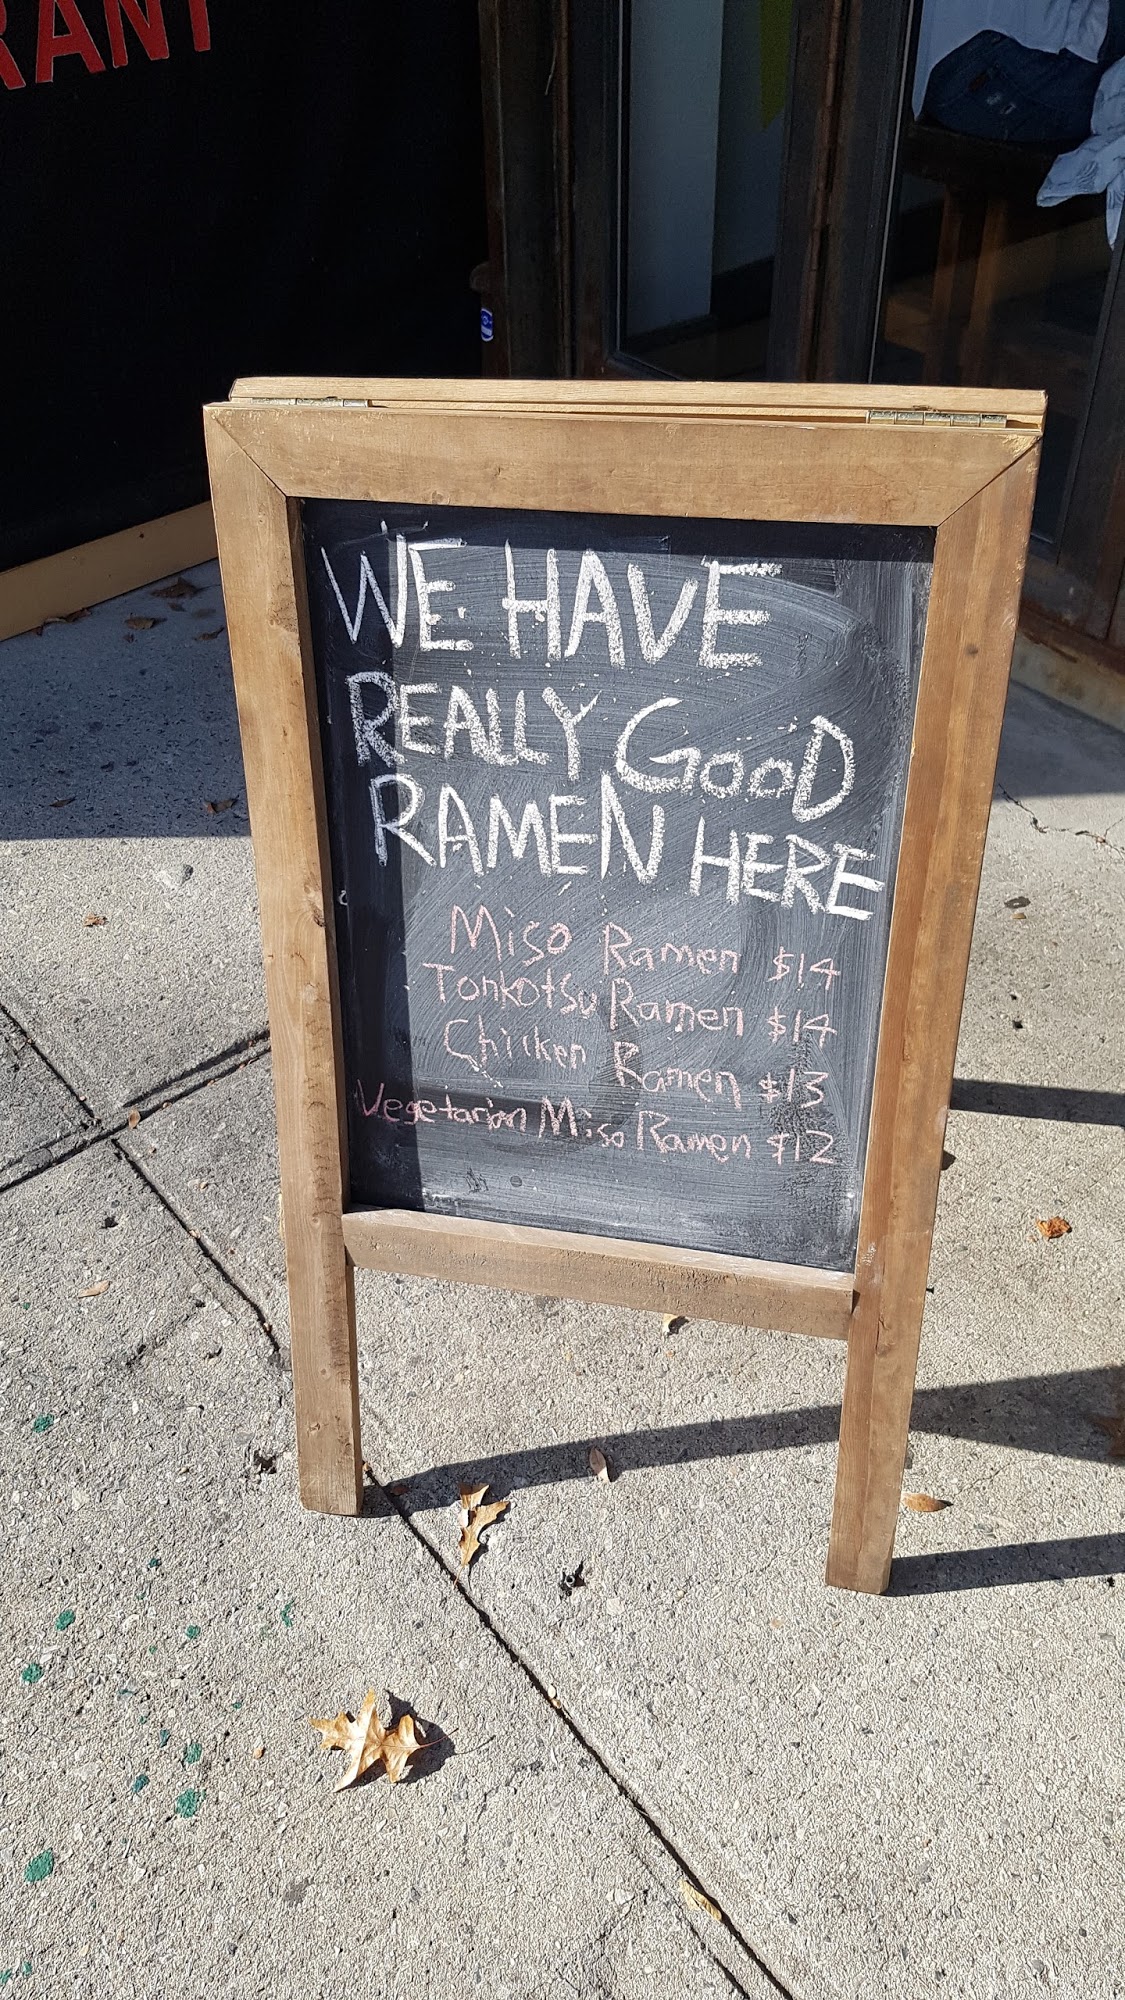 RANT
WE HAVE
REALLY GOOD
RAMEN HERE
Miso Ramen $14
Tonkotsu Ramen $14
Chicken Ramen $13
Vegetarian Miso Ramen $12